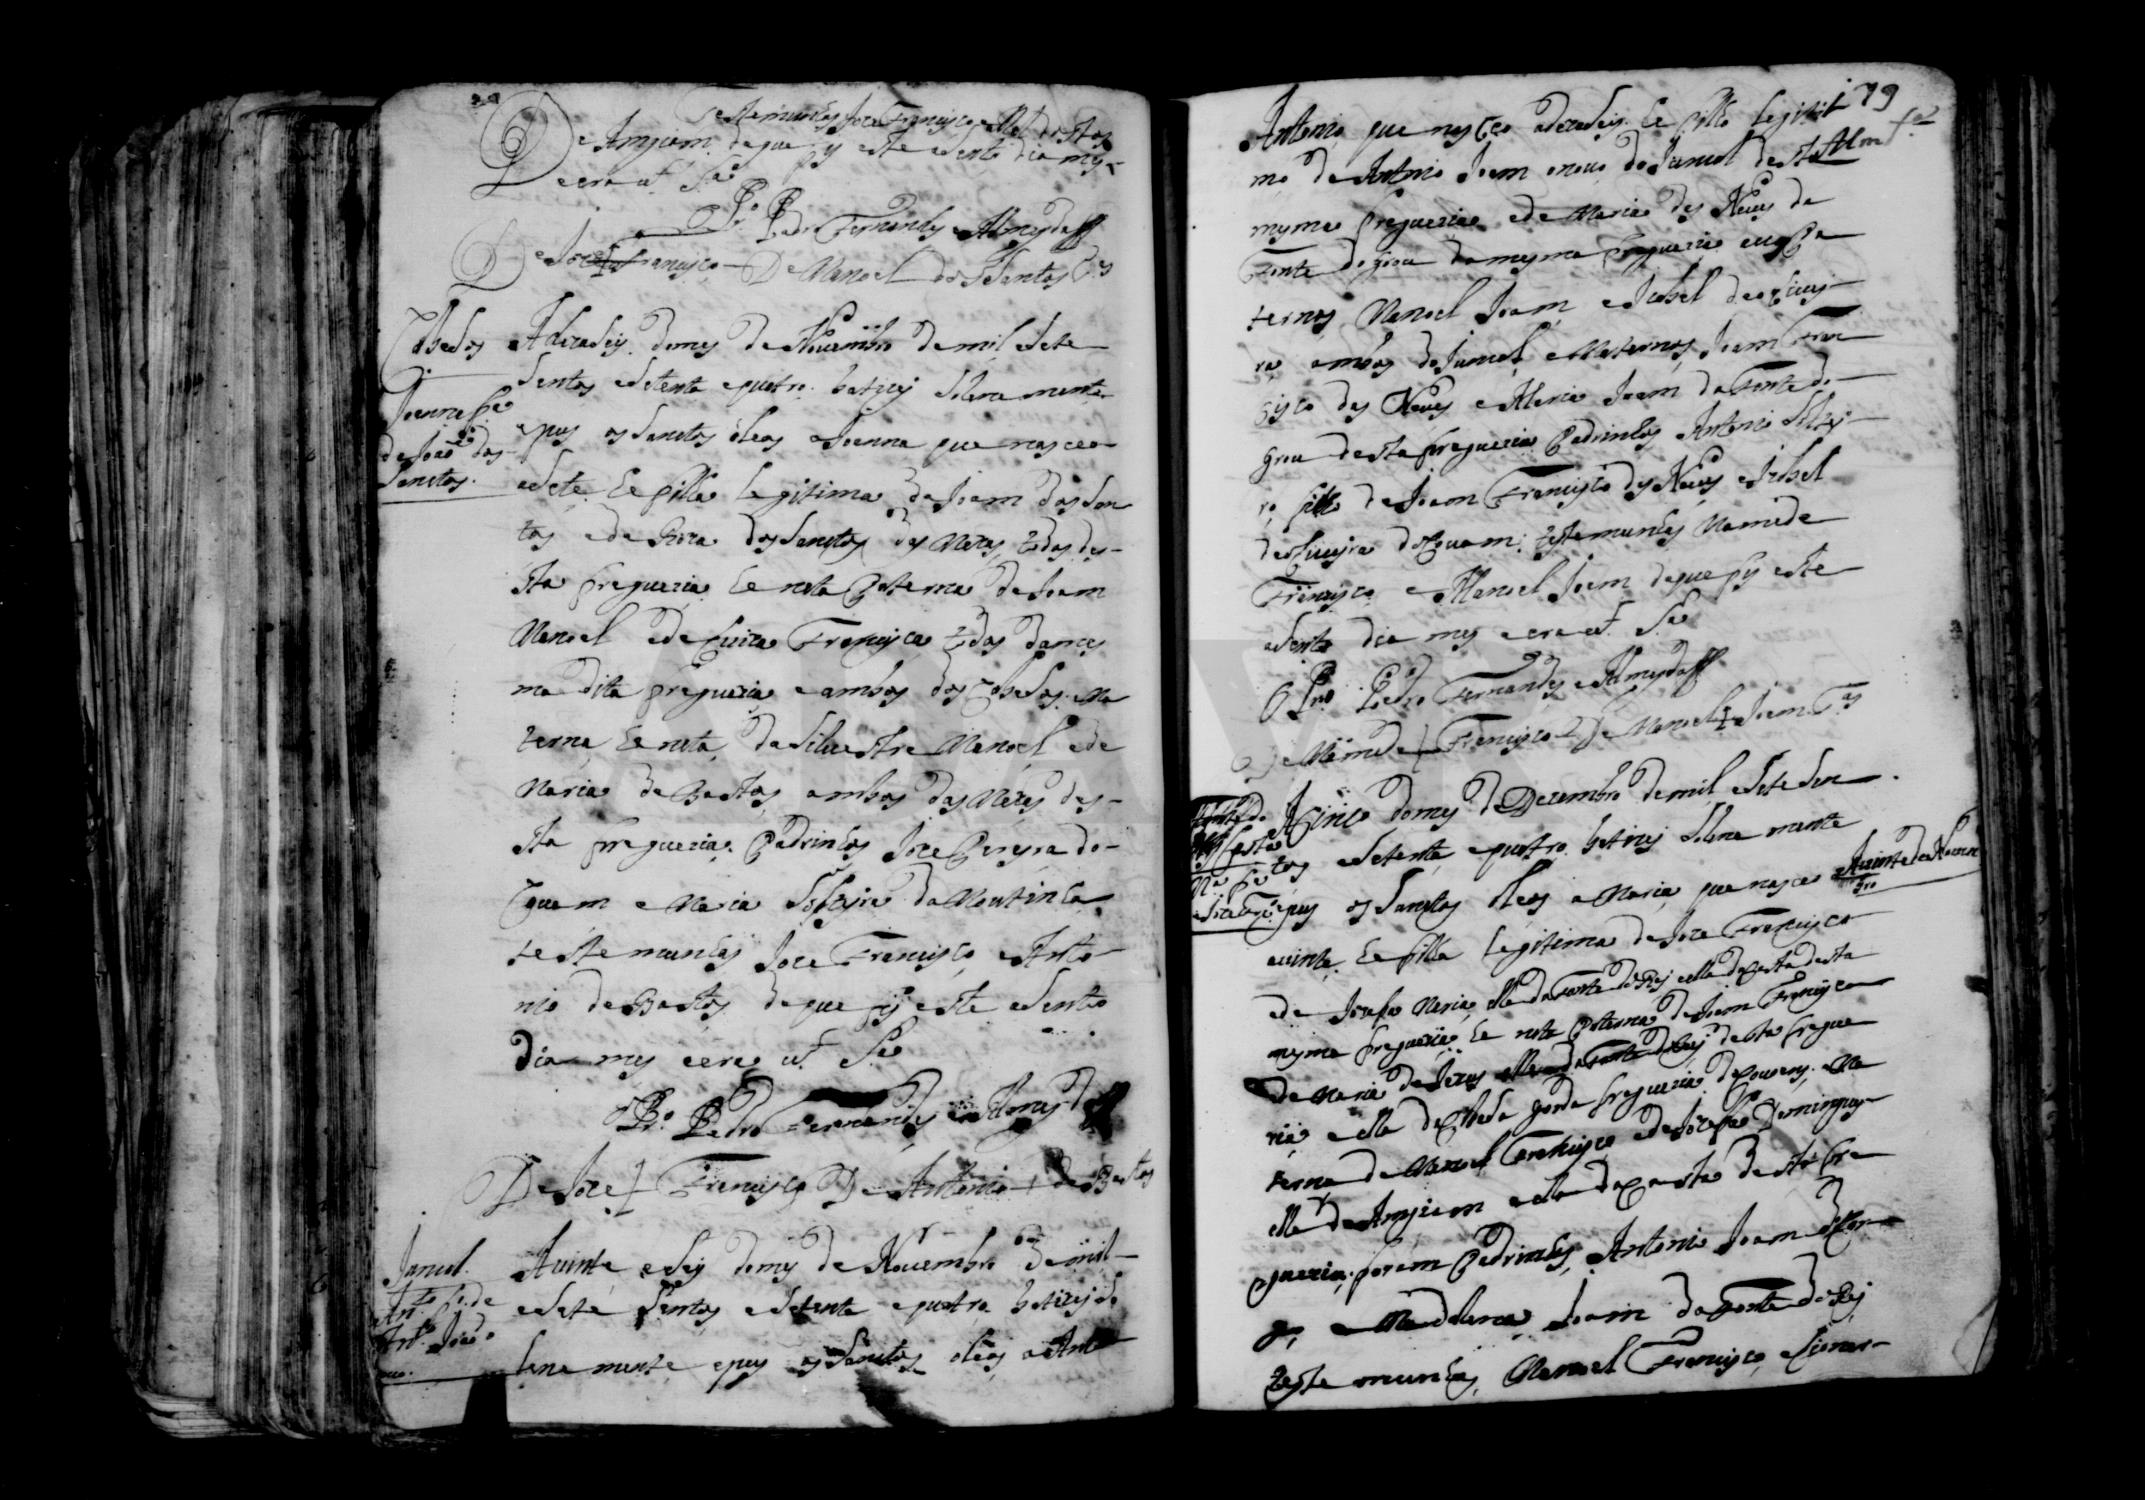 testemunhas Joze Francisco e Mel dos Stos
De Amyiam de que fis este asento dia mes
e era ut Sa
Po Pedro Fernandes e Almeyda
De Joze Francisco De Manoel dos Santos
Cabesos
Joanna fa
de Joaõ dos
Santos.
A dezaseis do mes de Novembro de mil e sete
sentos e setenta e quatro baticei solene mente
e pus os santos oleos a Joanna que nasceo
a sete he filha legitima de Joam dos San
tos e de Roza dos Santos das Mezas todos des-
ta freguezia he neta Paterna de Joam
Manoel e de Luiza Francisca todos da mes
ma dita freguezia e ambos dos Cabesos Ma
terna he neta de Silvestre Manoel e de
Maria de Bastos ambos das Mezas des-
ta freguezia Padrinhos Joze Pereyra do
Couam e Maria Solteyra da Moutinha
testemunhas Joze Francisco e Anto
nio de Bastos de que fis este asento
dia mes e era ut Sa
o Po Pedro Fernandes e Almeyda
De Joze Francisco De Antonio de Bastos
Janual.
Anto fo de
Anto Joaõ
A vinte e seis do mes de Novembro de mil
e sete sentos e setenta e quatro baticei so
lene mente e pus os santos oleos a Anto
79
Antonio que nasceo a dezaseis he filho legiti
mo de Antonio Joam novo do Janual desta
mesma freguezia e de Maria das Neves da
Fonte do grou da mesma freguezia neto Pa
ternos Manoel Joam e Izabel de oliuey
ra ambos do Janual e Maternos Joam Fran
cisco das Neves e Maria Joam da Fonte do
grou desta freguezia Padrinhos Antonio soltey
ro filho de Joam Francisco das Neves e Izabel
de oliueyra do Couam testemunhas Mamede
Francisco e Manoel Joam de que fis este
asento dia mes e era ut Sa
O Pro Pedro Fernandes e Almeyda
De Mamede Francisco De Manoel Joam
A sinco do mes de Dezembro de mil e sete sen
tos e setenta e quatro baticei solene mente
e pus os santos oleos a Maria que nasceo a vinte de Novem
bro
a vinte he filha legitima de Joze Francisco
e de Jozefa Maria elle da Fonte do Rey e ella da Costa desta
mesma freguezia he neta Paterna de Joam Francisco
de Maria de Jezus elle da Fonte do Rey desta fregue
zia e ella da freguezia de Ma
terna de Manoel Francisco e de Jozefa Domingues
elle de Amyiam e ella da Costa desta fre
guezia foram Padrinhos Antonio Joam
e Madalena Joam da Fonte do Rey
testemunhas Manoel Francisco e Lionar